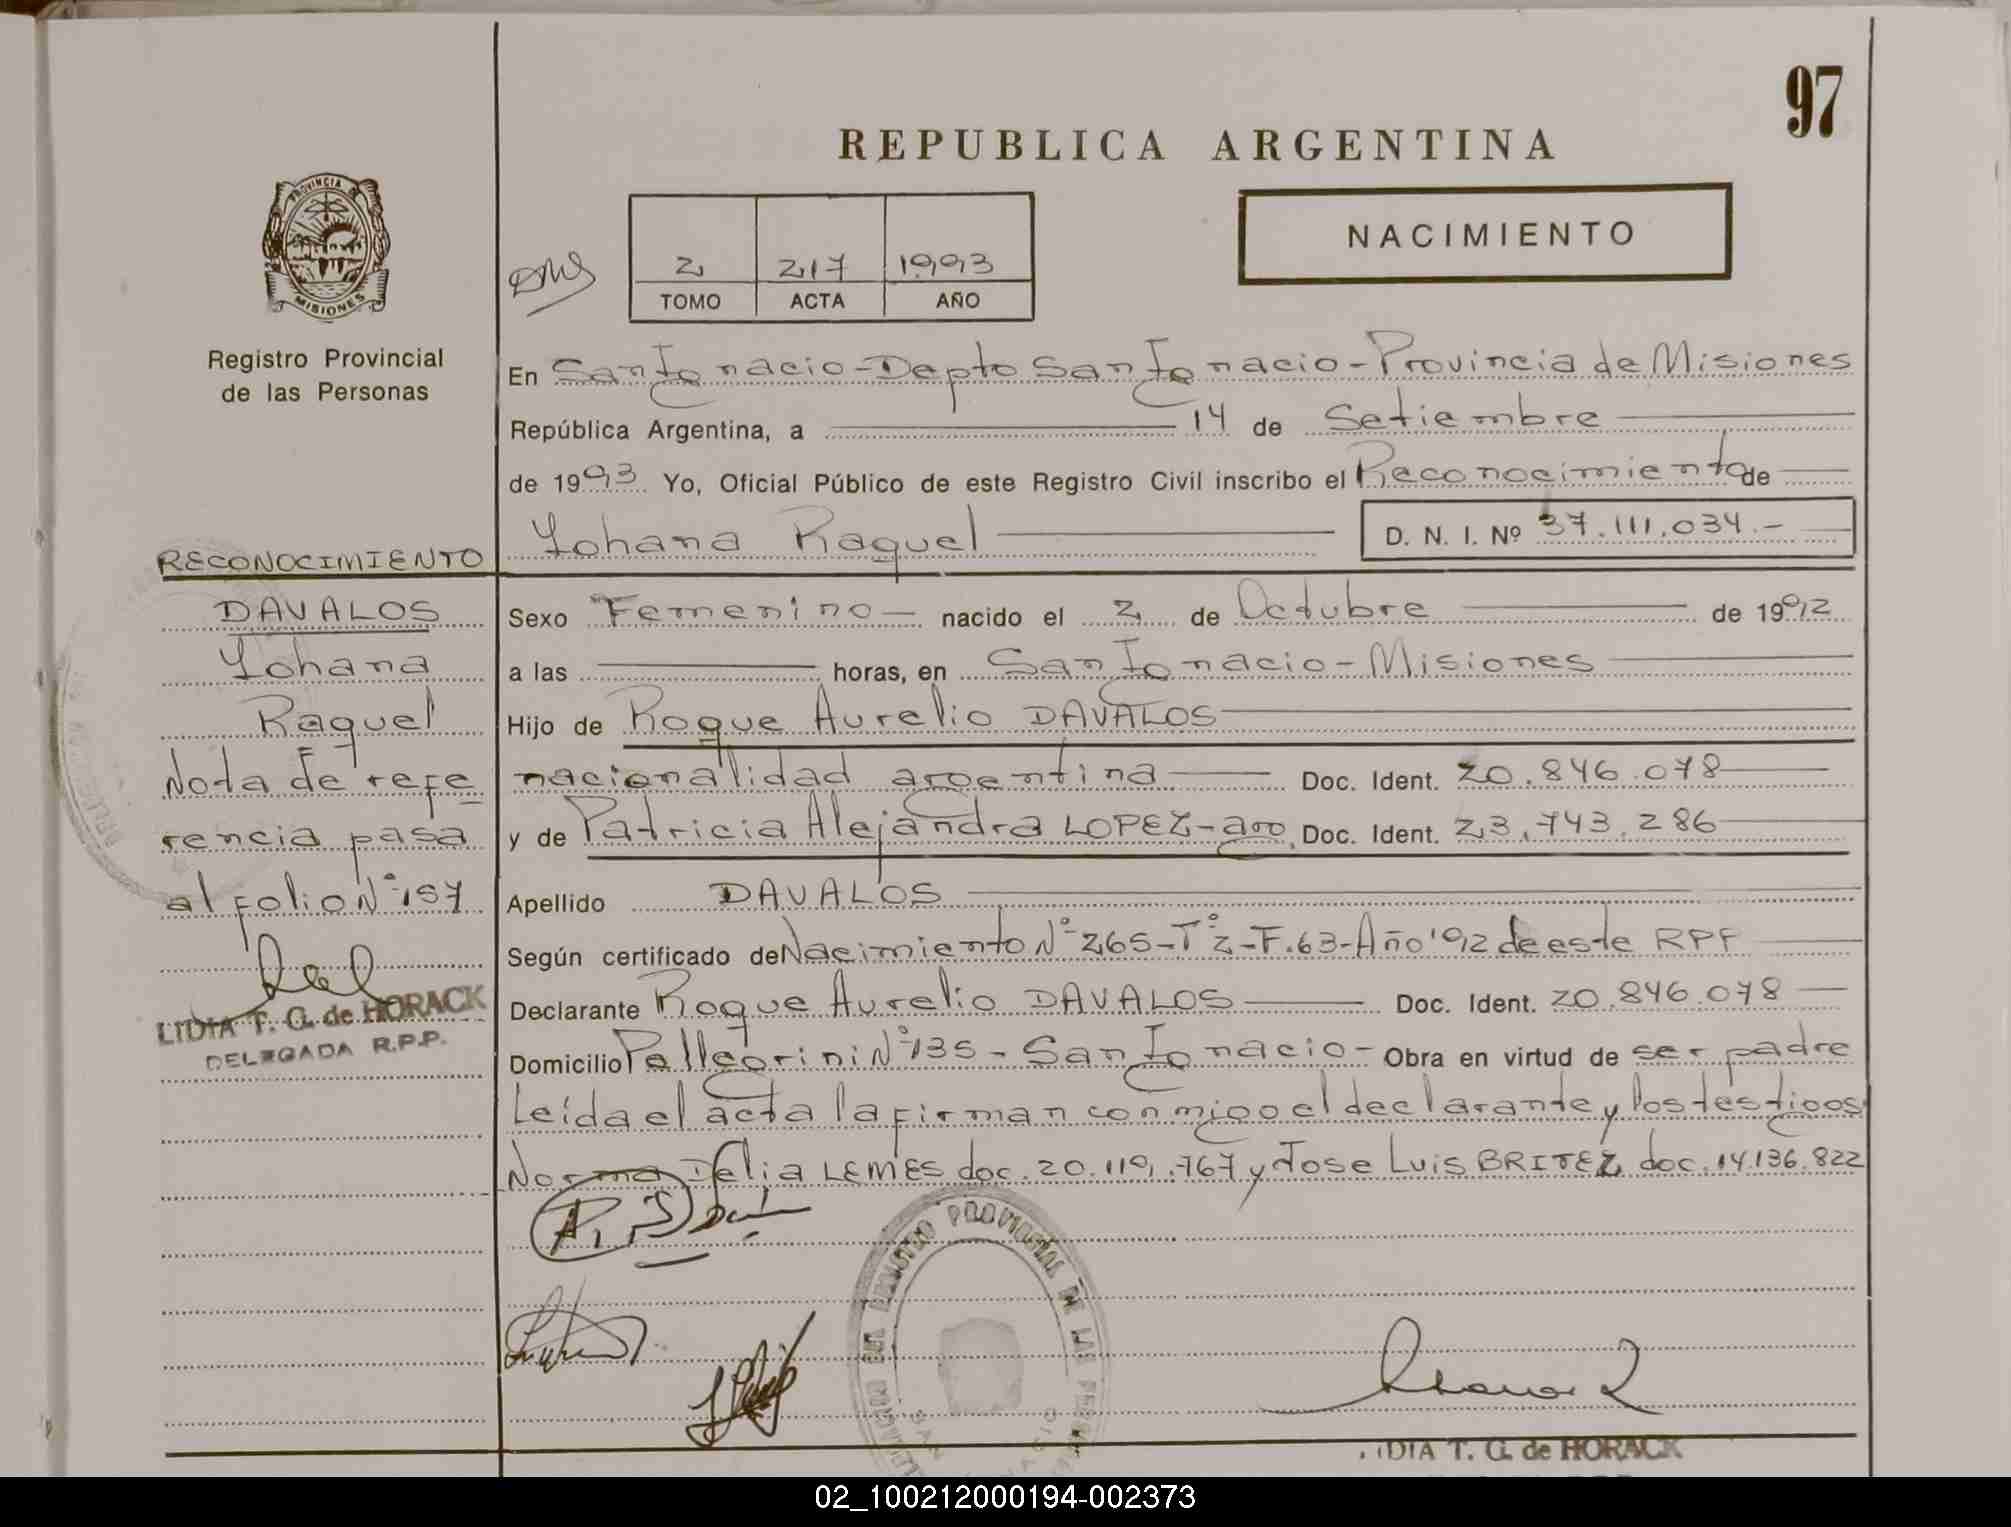 97
REPUBLICA ARGENTINA
NACIMIENTO
2 217 1993
TOMO ACTA AÑO
PROVINCIA DE
MISIONES
Registro Provincial
de las Personas
En San Ignacio - Depto San Ignacio - Provincia de Misiones
República Argentina, a 14 de Setiembre
de 1993 Yo, Oficial Público de este Registro Civil inscribo el Reconocimiento de
Yohana Raquel D. N. I. Nº 37.111.034.-
RECONOCIMIENTO
DAVALOS
Yohana
Raquel
Nota de refe
rencia pasa
al folio Nº 157
LIDIA T. G. de HORACK
DELEGADA R.P.P.
Sexo Femenino nacido el 2 de Octubre de 1992
a las horas, en San Ignacio - Misiones
Hijo de Roque Aurelio DAVALOS
nacionalidad argentina Doc. Ident. 20.846.078
y de Patricia Alejandra LOPEZ - arg. Doc. Ident. 23.743.286
Apellido DAVALOS
Según certificado de Nacimiento Nº 265 - Tº 2 - F. 63 - Año '92 de este RPP
Declarante Roque Aurelio DAVALOS Doc. Ident. 20.846.078
Domicilio Pellegrini Nº 135 - San Ignacio - Obra en virtud de ser padre
Leída el acta la firman conmigo el declarante y los testigos
Norma Delia LEMES doc. 20.119.767 y Jose Luis BRITEZ doc. 14.136.822
REGISTRO PROVINCIAL DE LAS
LIDIA T. G. de HORACK
02_100212000194-002373